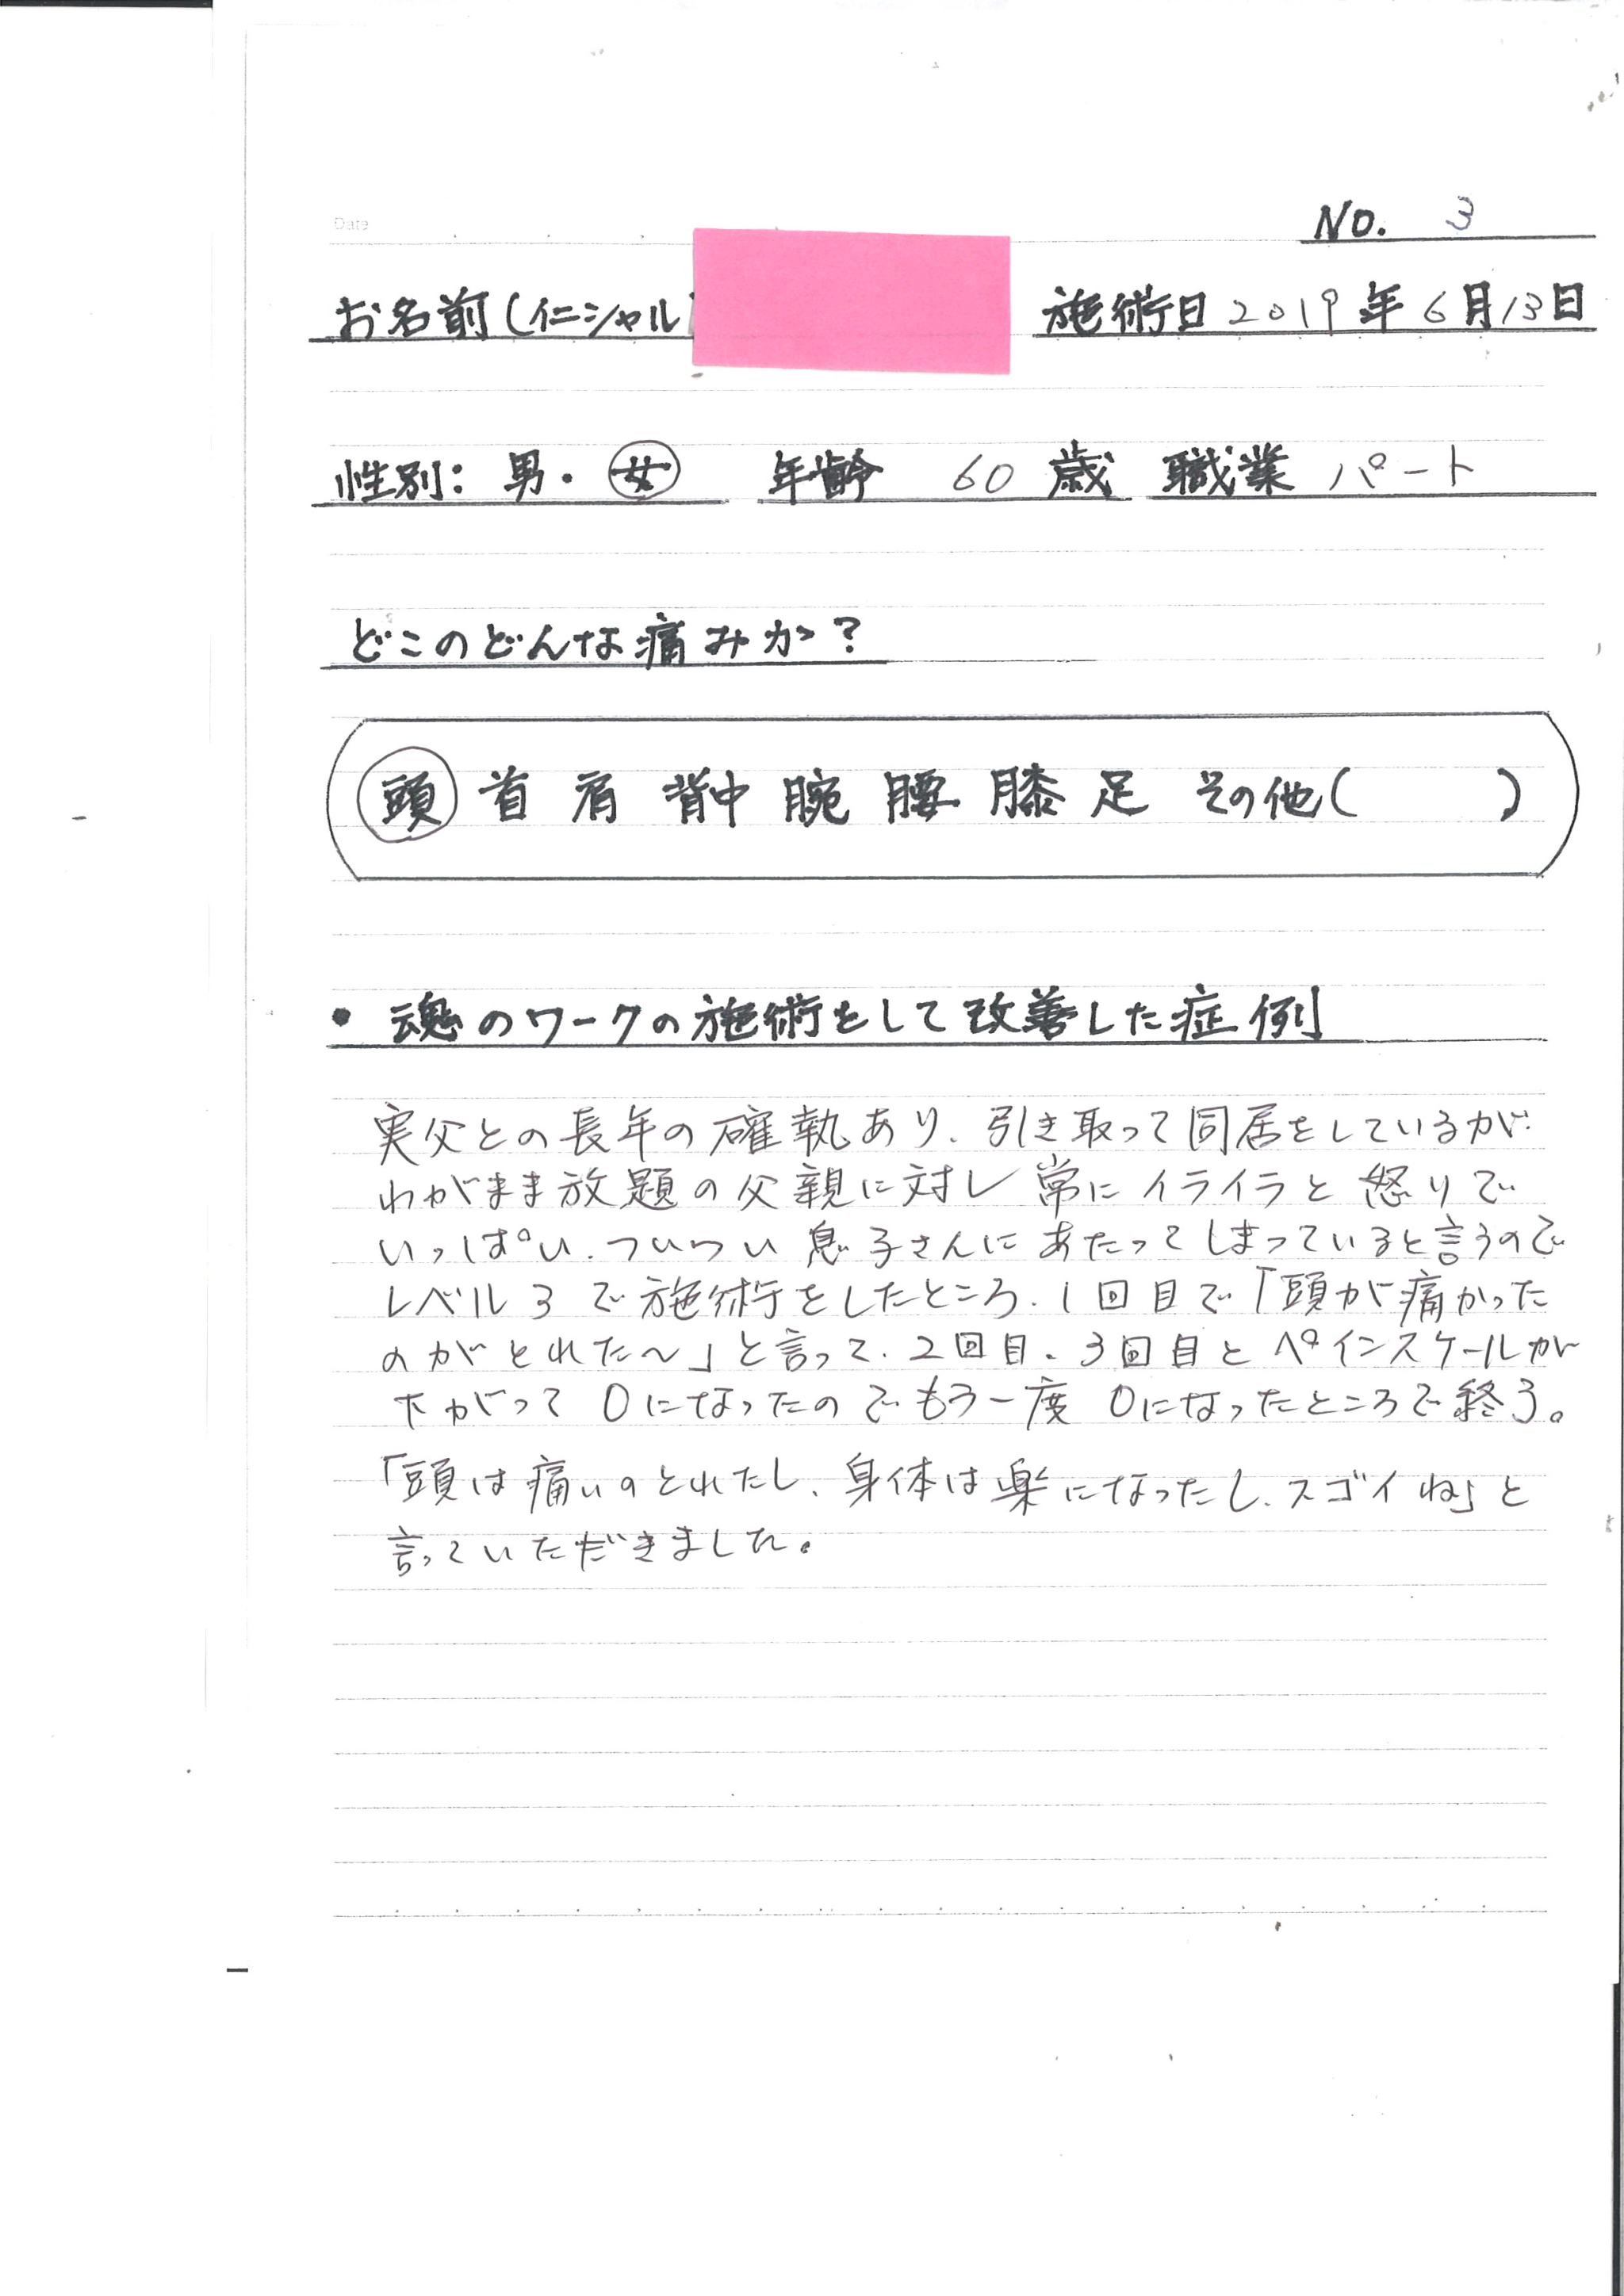 Date
NO. 3
お名前(イニシャル
施術日 2019年6月13日
性別: 男・女 年齢 60歳 職業 パート
どこのどんな痛みか?
頭 首 肩 背中 腕 腰 膝 足 その他( )
• 魂のワークの施術をして改善した症例
実父との長年の確執あり、引き取って同居をしているが
わがまま放題の父親に対し常にイライラと怒りで
いっぱい、ついつい息子さんにあたってしまっていると言うので
レベル3で施術をしたところ、1回目で「頭が痛かった
のがとれた〜」と言って、2回目、3回目とペインスケールが
下がって0になったのでもう一度0になったところで終了。
「頭は痛いのとれたし、身体は楽になったし、スゴイね」と
言っていただきました。